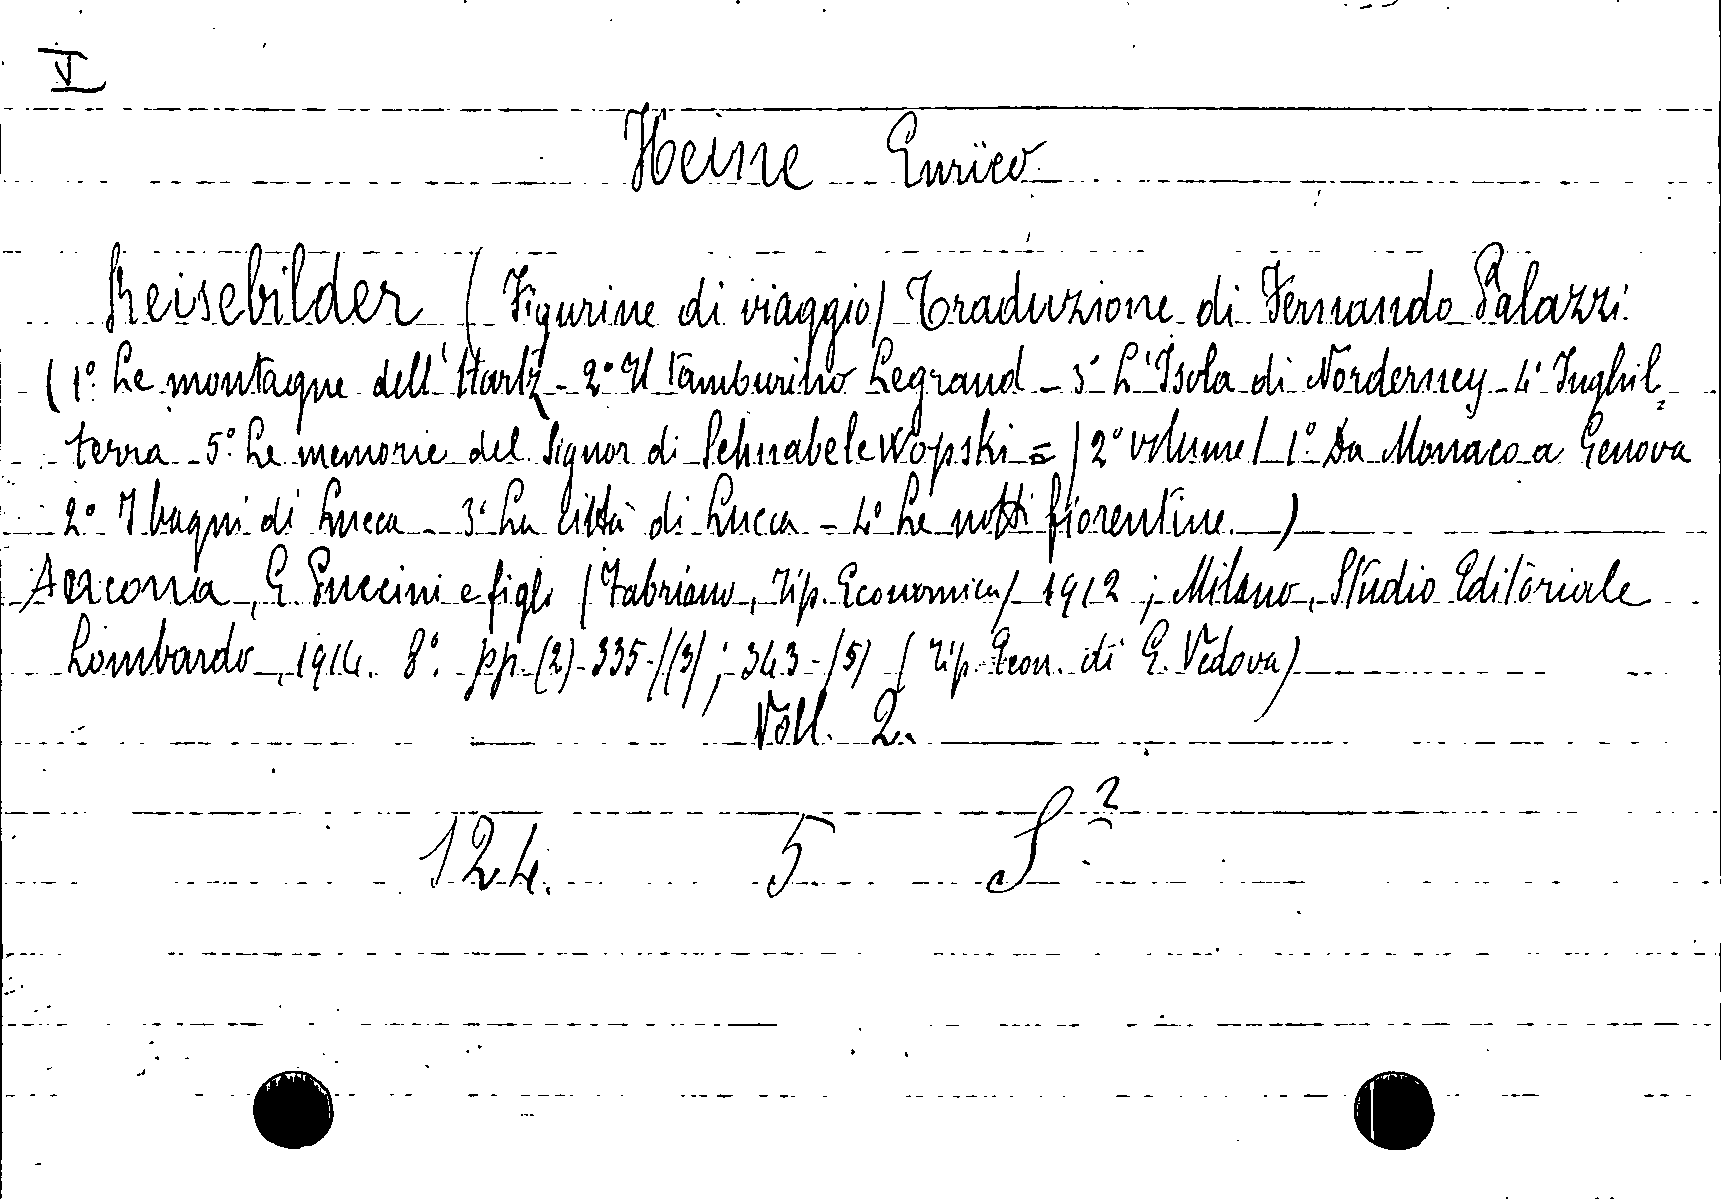 V
Heine Enrico
Reisebilder (Figurine di viaggio) Traduzione di Fernando Palazzi.
(1° Le montagne dell'Hartz - 2° Il tamburino Legrand - 3° L'Isola di Norderney - 4° Inghil=
terra - 5° Le memorie del Signor di Schnabelewopski = (2° volume) 1° Da Monaco a Genova
2° I bagni di Lucca - 3° La Città di Lucca - 4° Le notti fiorentine.)
Ancona, G. Puccini e figli (Fabriano, Tip. Economica) 1912; Milano, Studio Editoriale
Lombardo, 1914. 8°. pp. (2)-335-(3); 343-(5) (Tip. Econ. di G. Vedova)
Voll. 2.
124. 5 S²